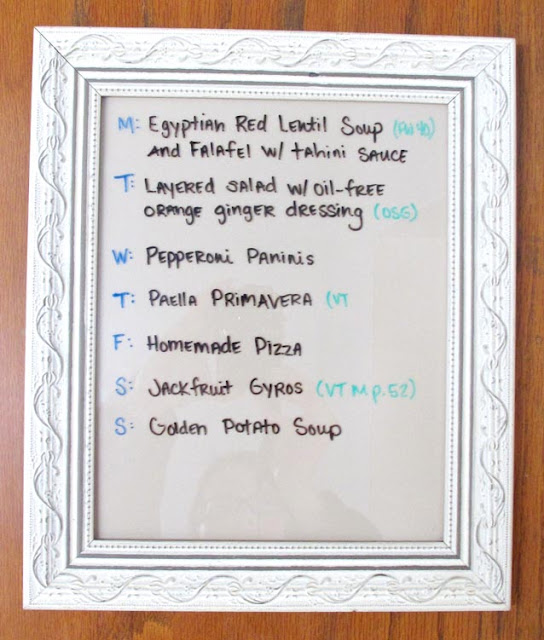 M: Egyptian Red Lentil Soup
and Falafel w/ tahini sauce
T: Layered salad w/ oil-free
orange ginger dressing (OSG)
W: Pepperoni Paninis
T: Paella Primavera (VT
F: Homemade Pizza
S: Jackfruit Gyros (VT M p.52)
S: Golden Potato Soup